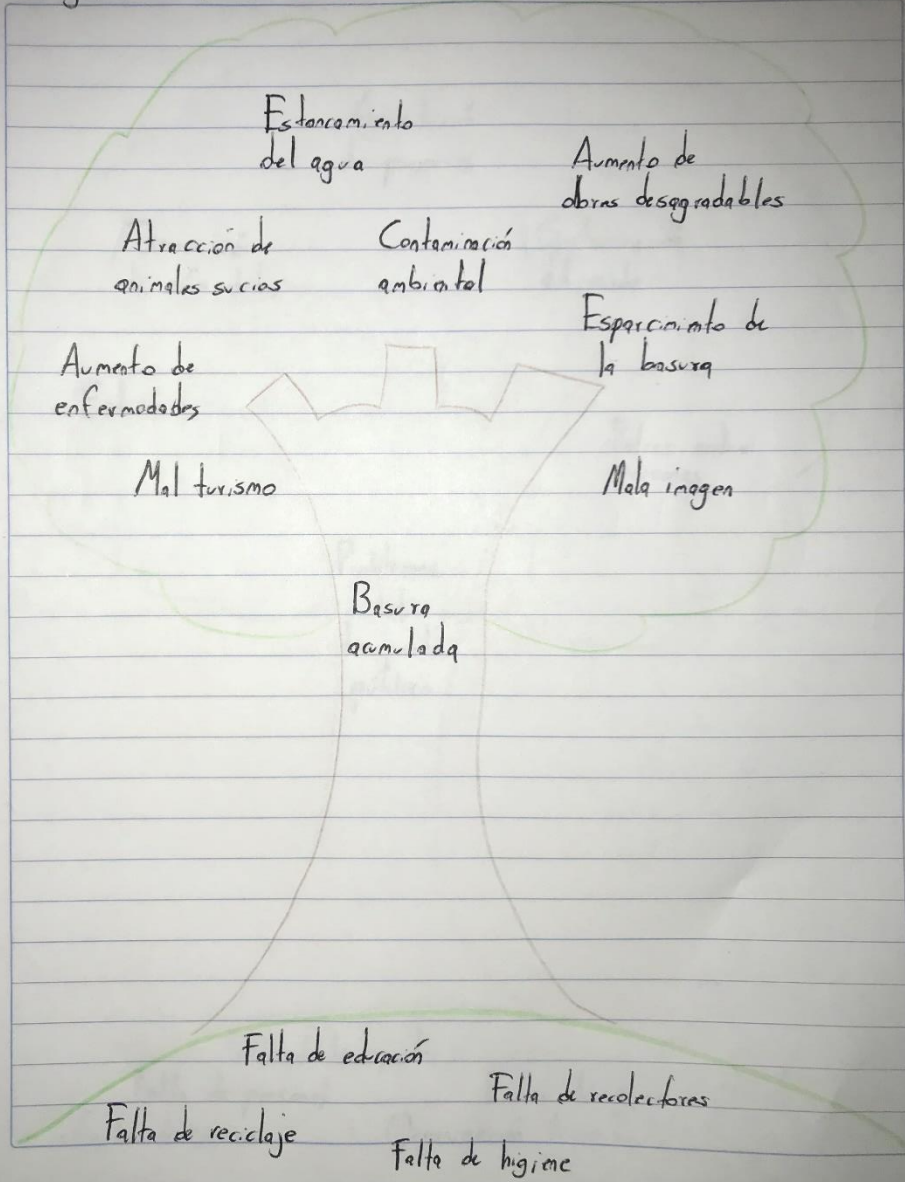 Estancamiento
del agua
Aumento de
obras desagradables
Atracción de
animales sucios
Contaminación
ambiental
Esparcimiento de
la basura
Aumento de
enfermedades
Mal turismo
Mala imagen
Basura
acumulada
Falta de educación
Falta de recolectores
Falta de reciclaje
Falta de higiene